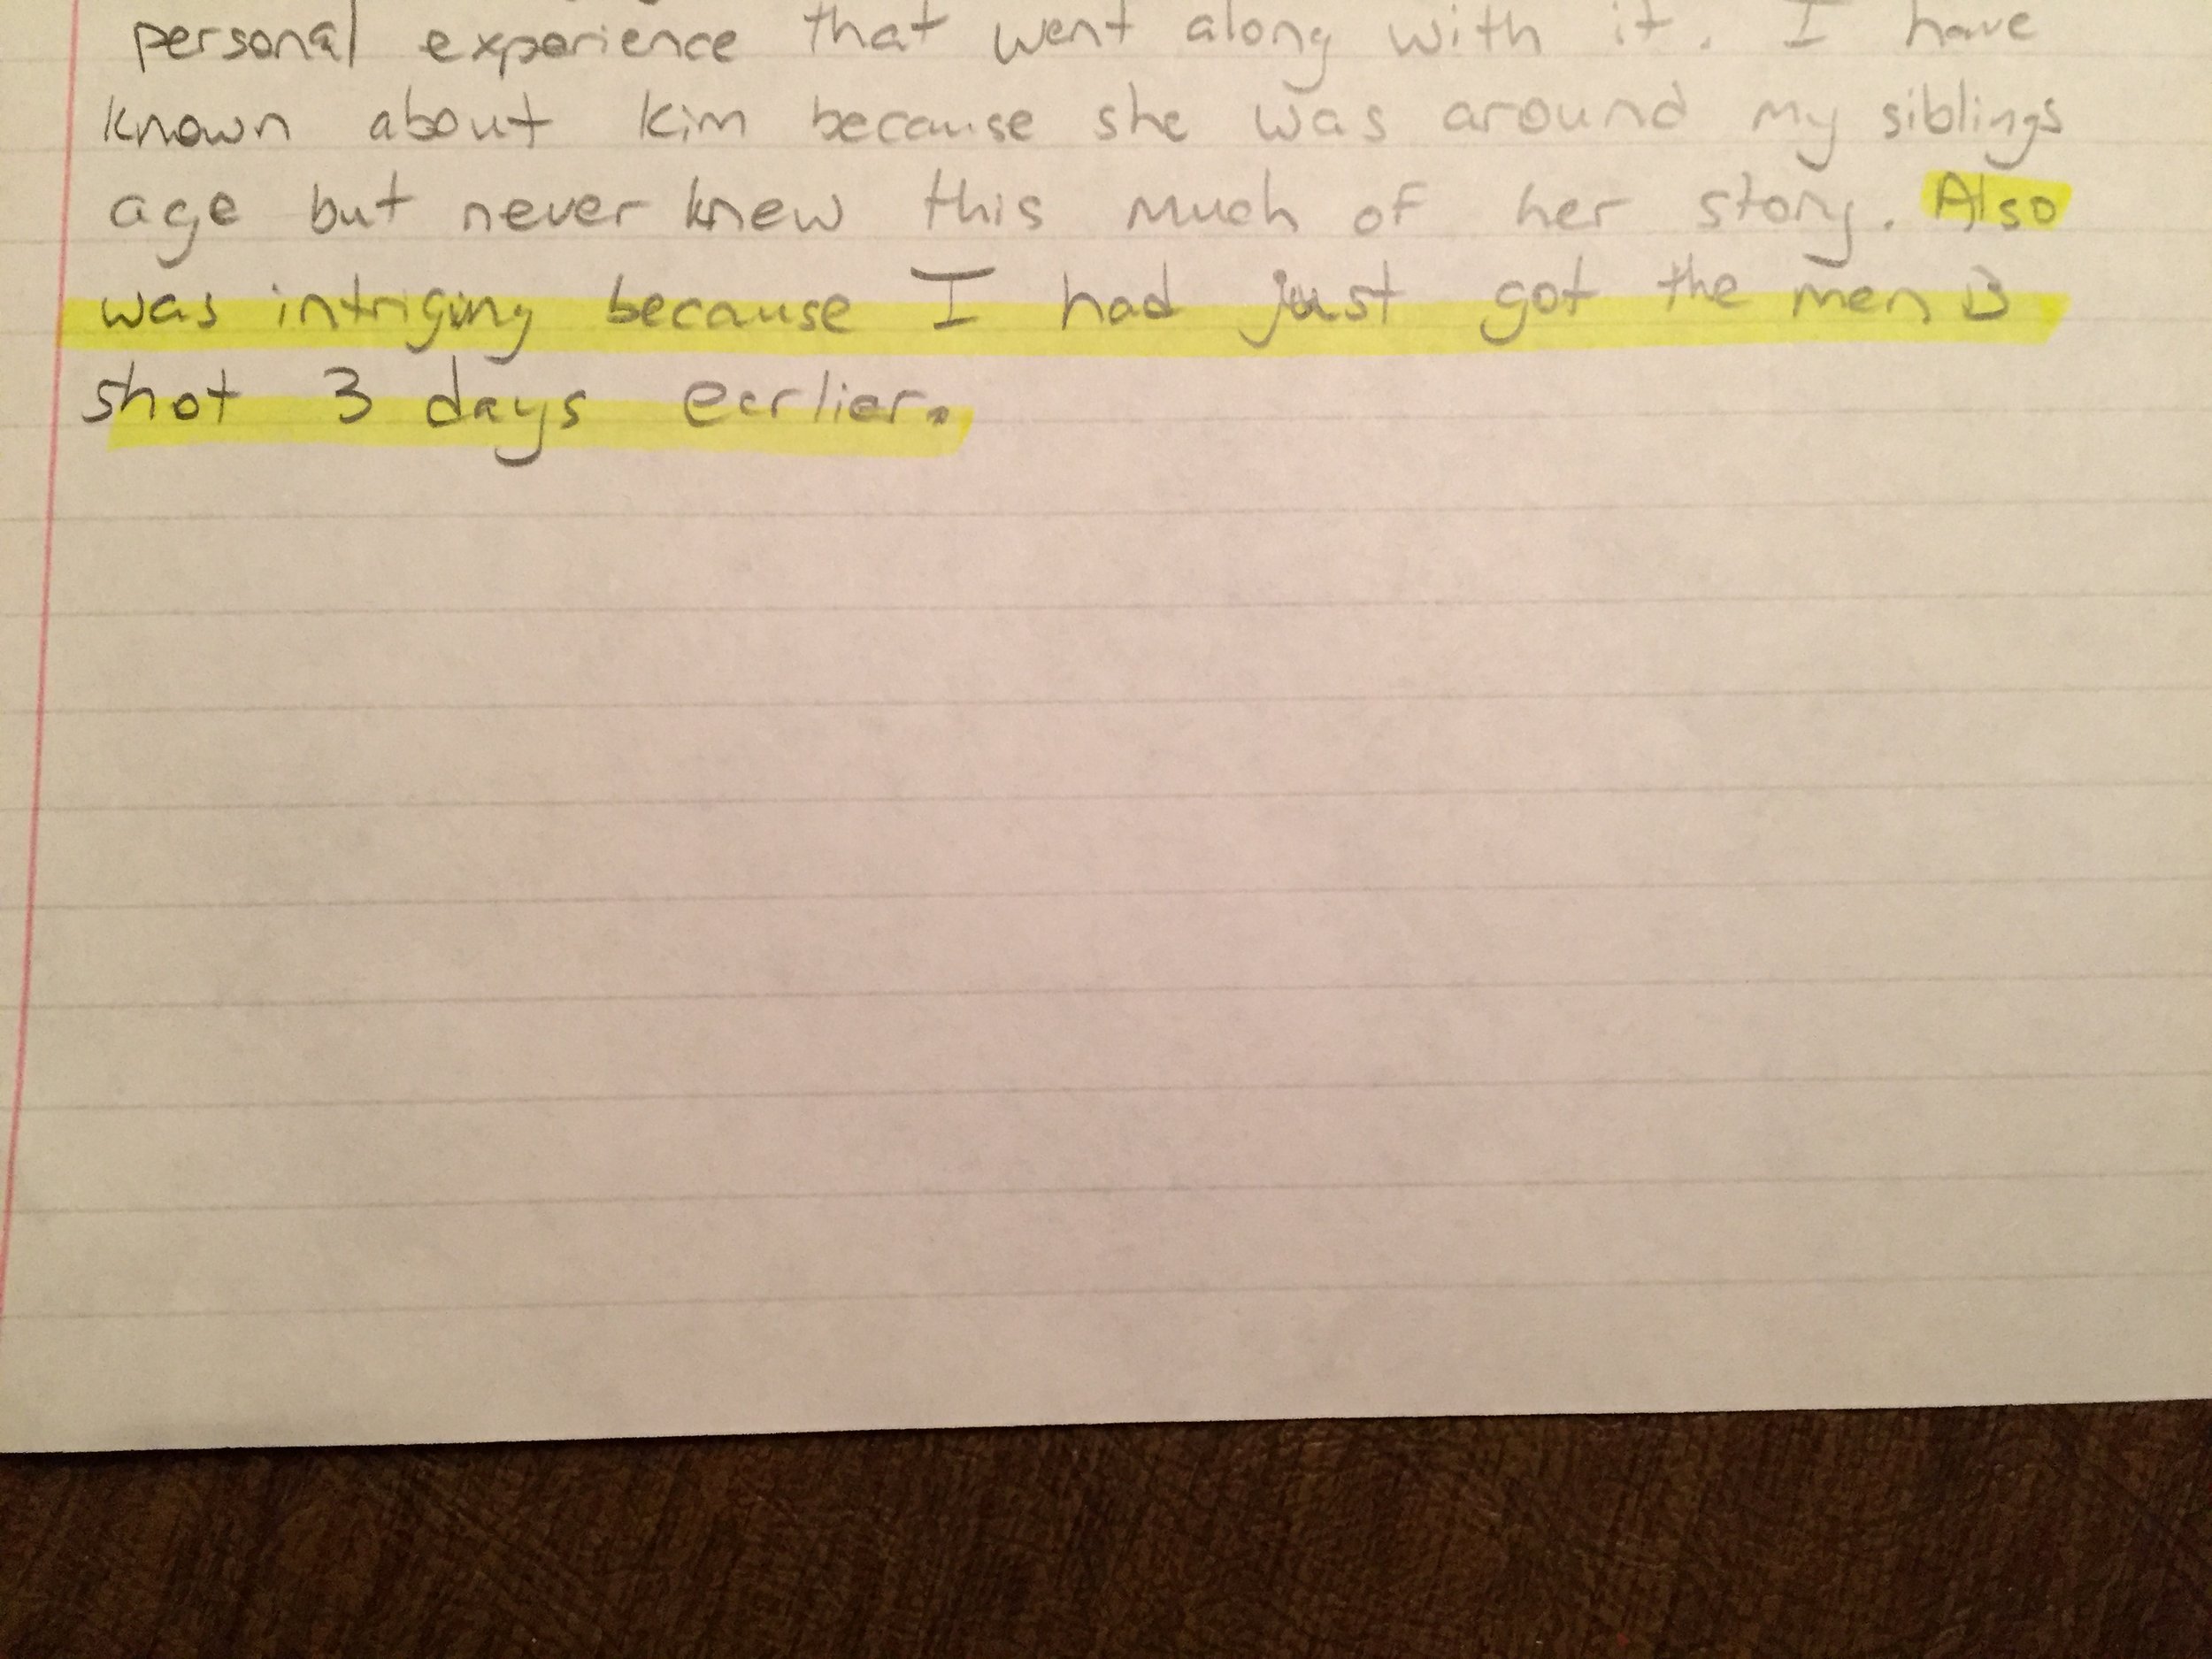 personal experience that went along with it. I have
known about Kim because she was around my siblings
age but never knew this much of her story. Also
was intriging because I had just got the men B
shot 3 days earlier.